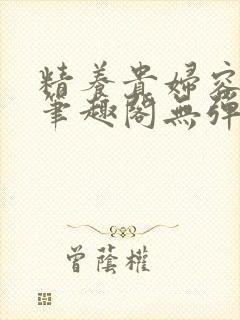 精養貴婦容
筆趣閣無彈
曾蔭權